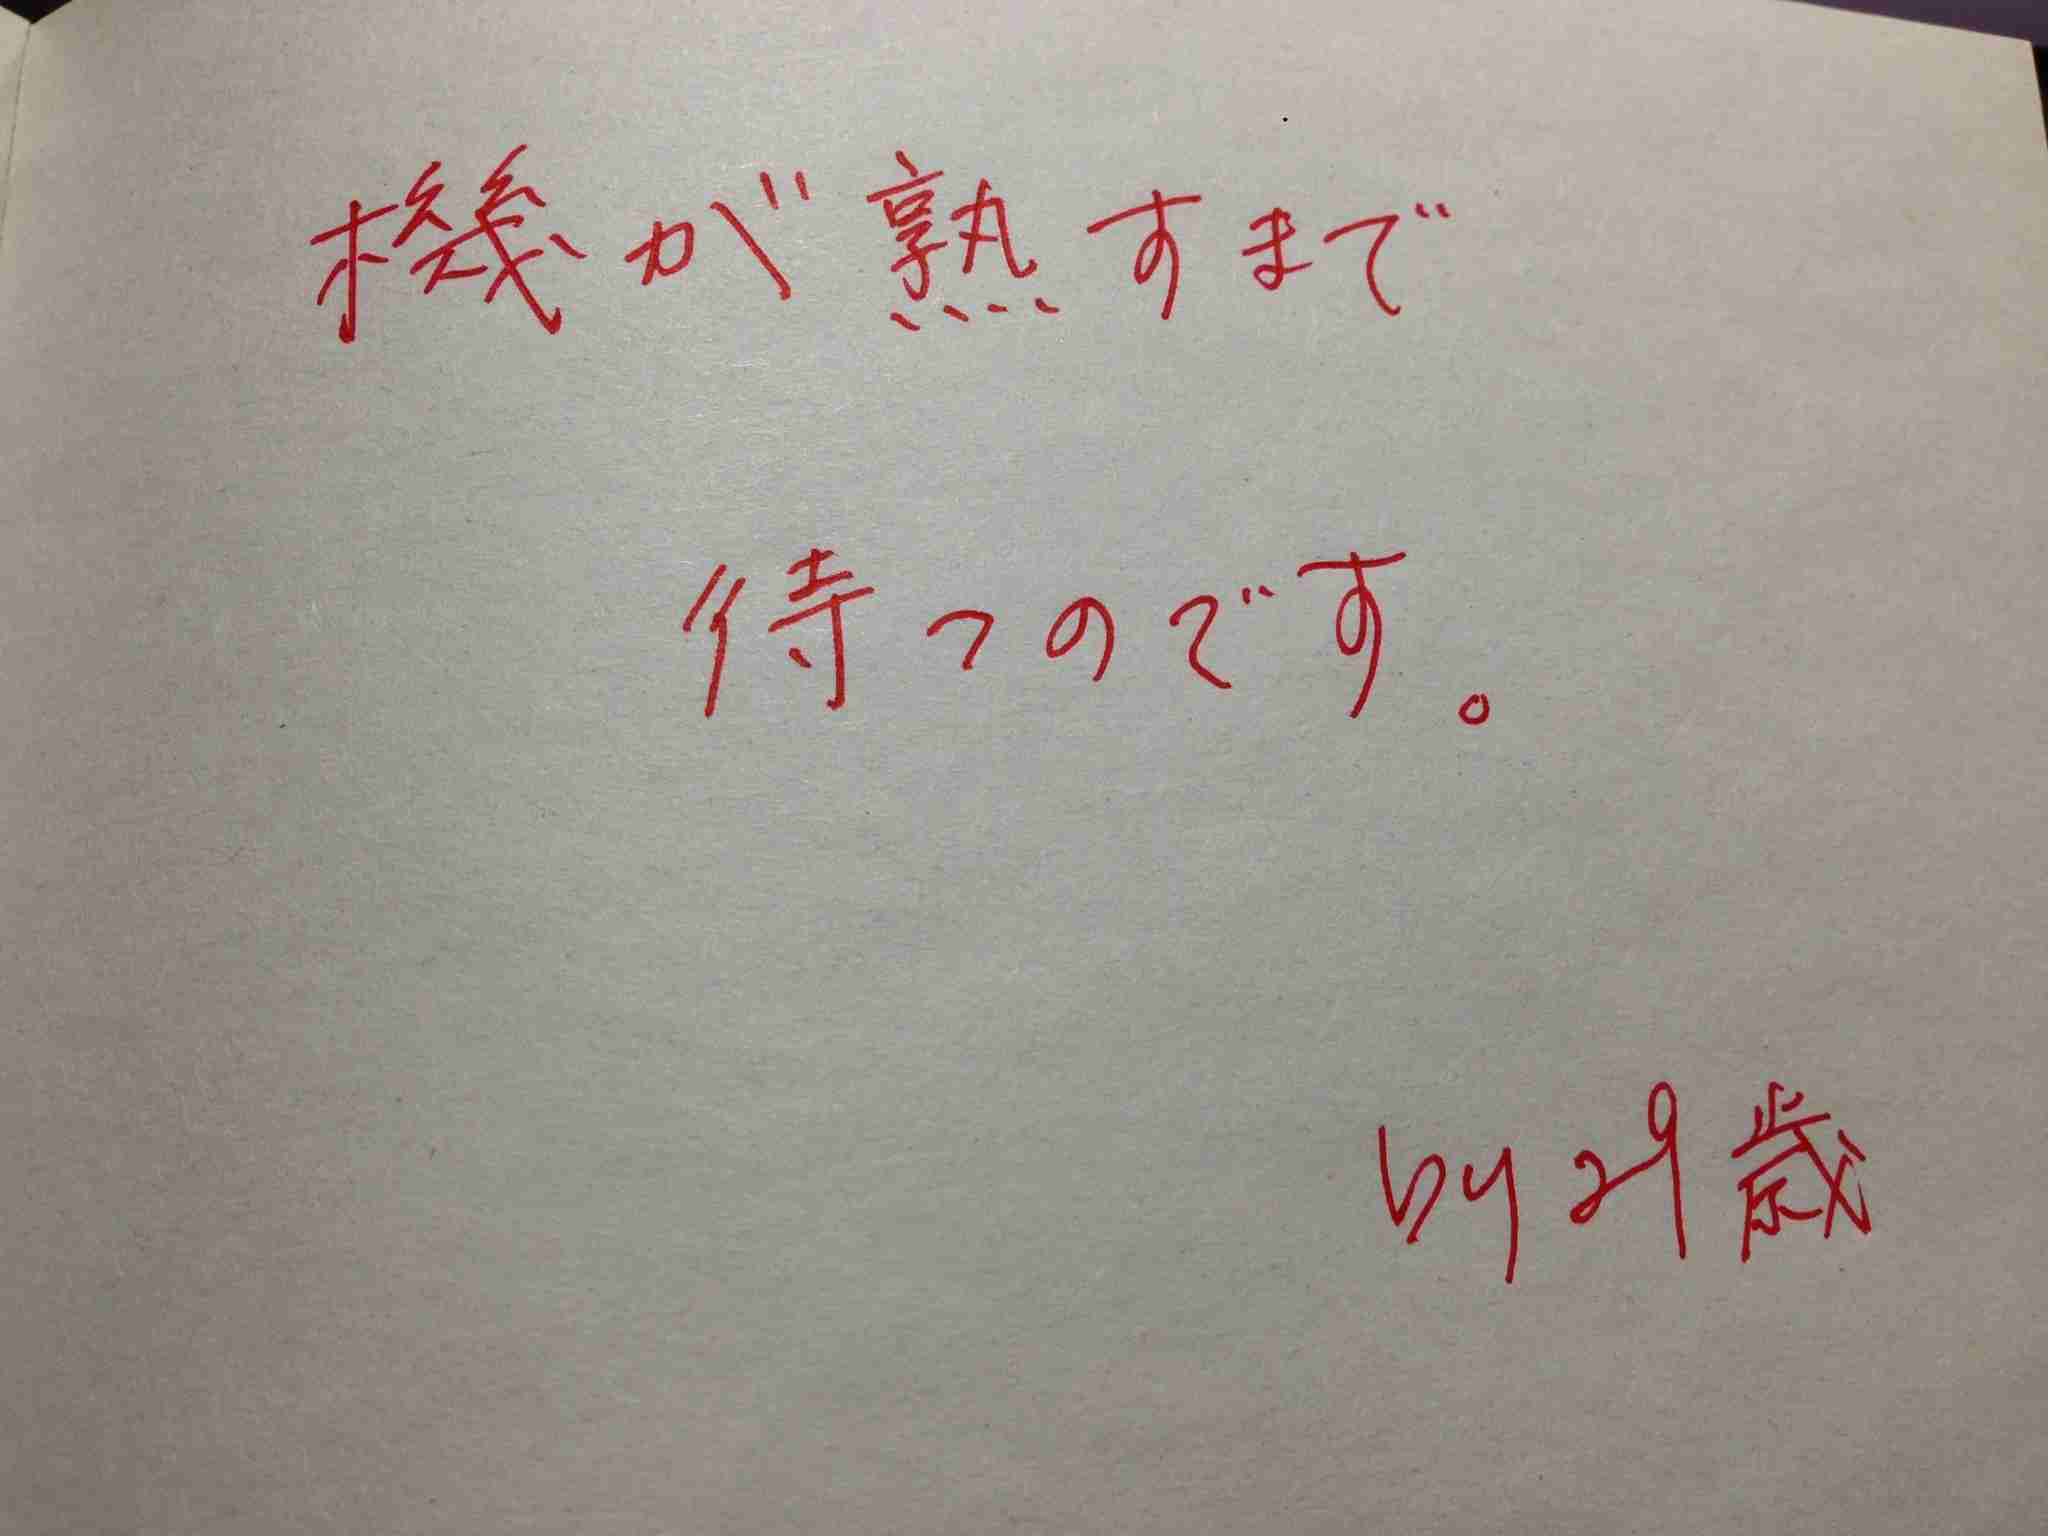 機が熟すまで
待つのです。
by 29歳